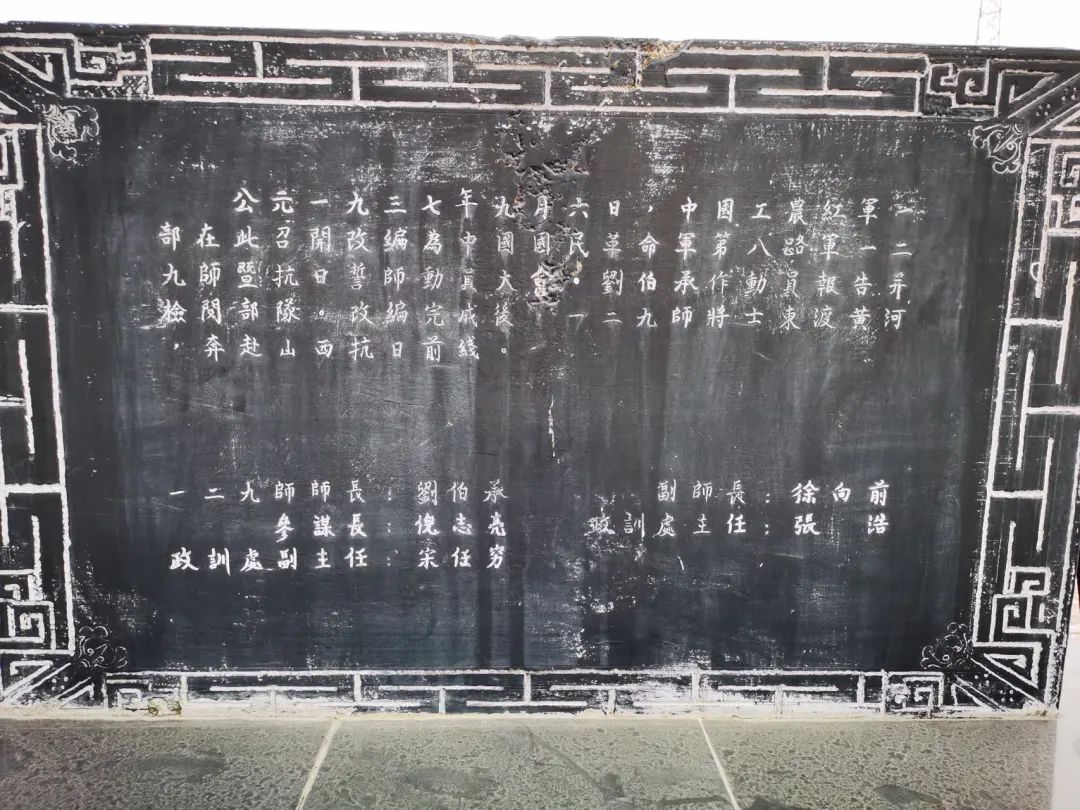 公元一九三七年九月六日，中國工農紅軍一
部在此召開改編為中國國民革命軍第八路軍一二
九師暨抗日誓師動員大會。劉伯承作動員報告并
檢閱部隊。改編完成後一二九師將士東渡黃河
，奔赴山西抗日前綫。
一二九師師長：劉伯承 副師長：徐向前
參謀長：倪志亮 政訓處主任：張浩
政訓處副主任：宋任穷